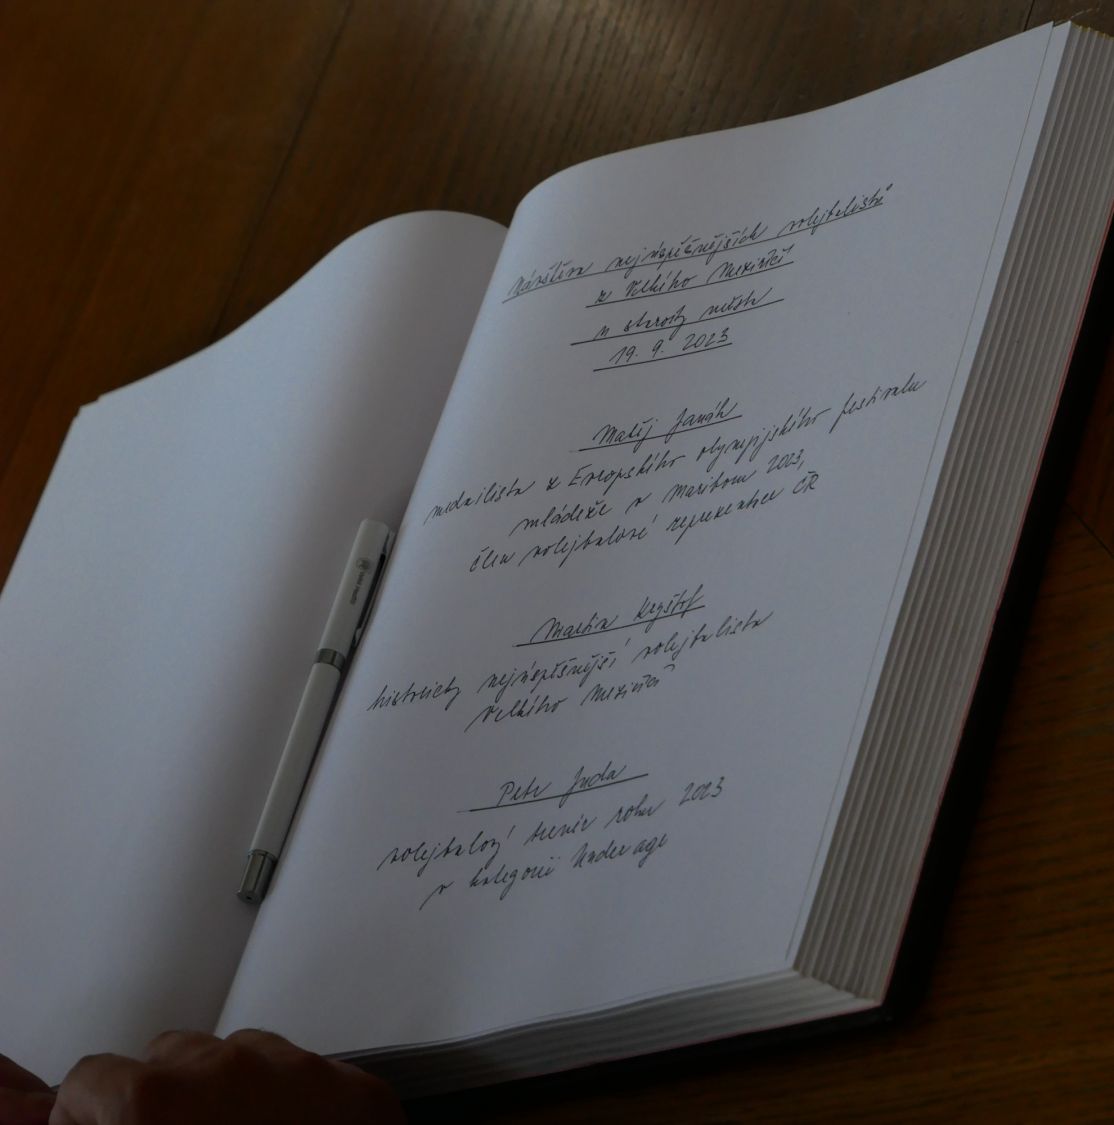 Návštěva nejúspěšnějších volejbalistů
z Velkého Meziříčí
u starosty města
19. 9. 2023
Matěj Janák
medailista z Evropského olympijského festivalu
mládeže v Mariboru 2023,
člen volejbalové reprezentace ČR
Martin Kryštof
historicky nejúspěšnější volejbalista
Velkého Meziříčí
Petr Juda
volejbalový trenér roku 2023
v kategorii Underage